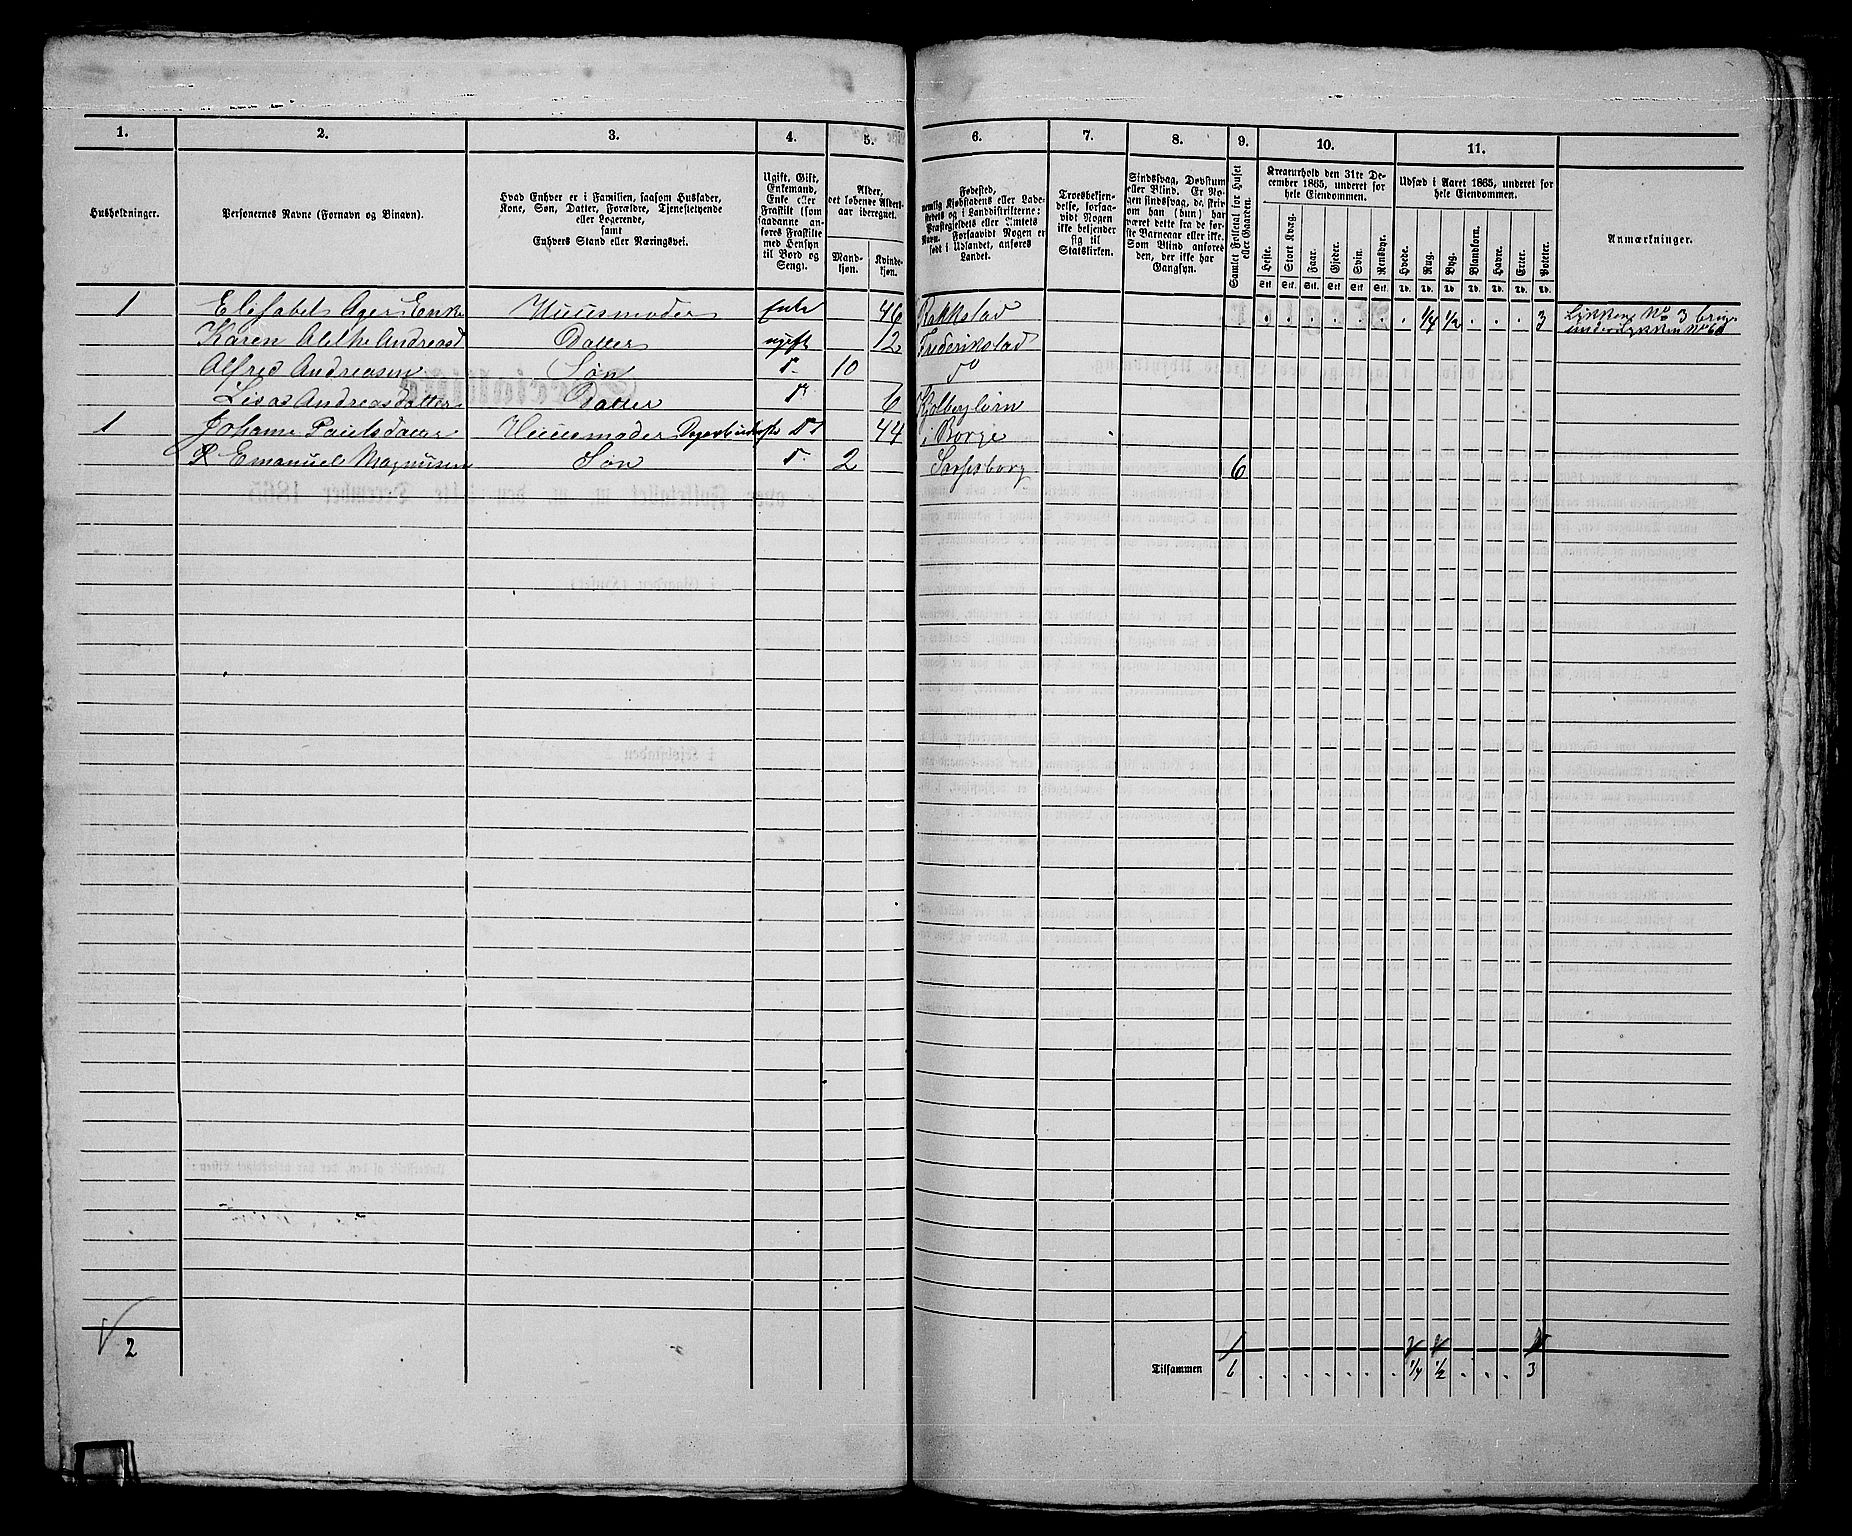 1. 2. 3. 4. 5. 6. 7. 8. 9. 10. 11.
Husholdninger.
Personernes Navne (Fornavn og Binavn).
Hvad Enhver er i Familien, saasom Husfader,
Kone, Søn, Datter, Forældre, Tjenestetyende
eller Logerende,
samt
Enhvers Stand eller Næringsvei.
Ugift, Gift,
Enkemand,
Enke eller
Fraskilt (som
saadanne an-
føres Fraskilte
med Hensyn
til Bord og
Seng).
Alder,
det løbende Alders-
aar iberegnet.
Mand-
kjøn.
Kvinde-
kjøn.
Fødested,
nemlig Kjøbstadens eller Lade-
stedets og i Landdistrikterne:
Præstegjeldets eller Annexets
Navn. Forsaavidt Nogen er
født i Udlandet, anføres
Landet.
Troesbekjen-
delse, forsaa-
vidt Nogen
ikke bekjender
sig til
Statskirken.
Sindssvag, Døvstum
eller Blind. Er No-
gen sindssvag, da, skriv
om han (hun) har
været dette fra de før-
ste Barneaar eller ikke.
Som Blind anføres
den, der ikke har
Gangsyn.
Samlet Folketal for Huset
eller Gaarden.
Kreaturhold den 31te De-
cember 1865, underet for
hele Eiendommen.
Heste. Stort Kvæg. Faar. Gjeder. Svin. Rensdyr.
Stk. Stk. Stk. Stk. Stk. Stk.
Udsæd i Aaret 1865, underet for
hele Eiendommen.
Hvede. Rug. Byg. Blandkorn. Havre. Erter. Poteter.
Td. Td. Td. Td. Td. Td. Td.
Anmærkninger.
1 Elisabet Ager Enke Huusmoder Enke 46 Rakkestad . . . . . . . 1/4 1/2 . . . 3 Løkken No 3
Karen Alethe Andreasd Datter ugift 12 Frederikstad
Alfred Andreasen Søn 10 do
Andreasdatter Datter 6
1 Johanne Paulsdatter Huusmoder 44 i Borge
Emanuel Magnusen Søn 2 Sarpsborg 6
2
Tilsammen 6 . . . . . . . 1/4 1/2 . . . 3